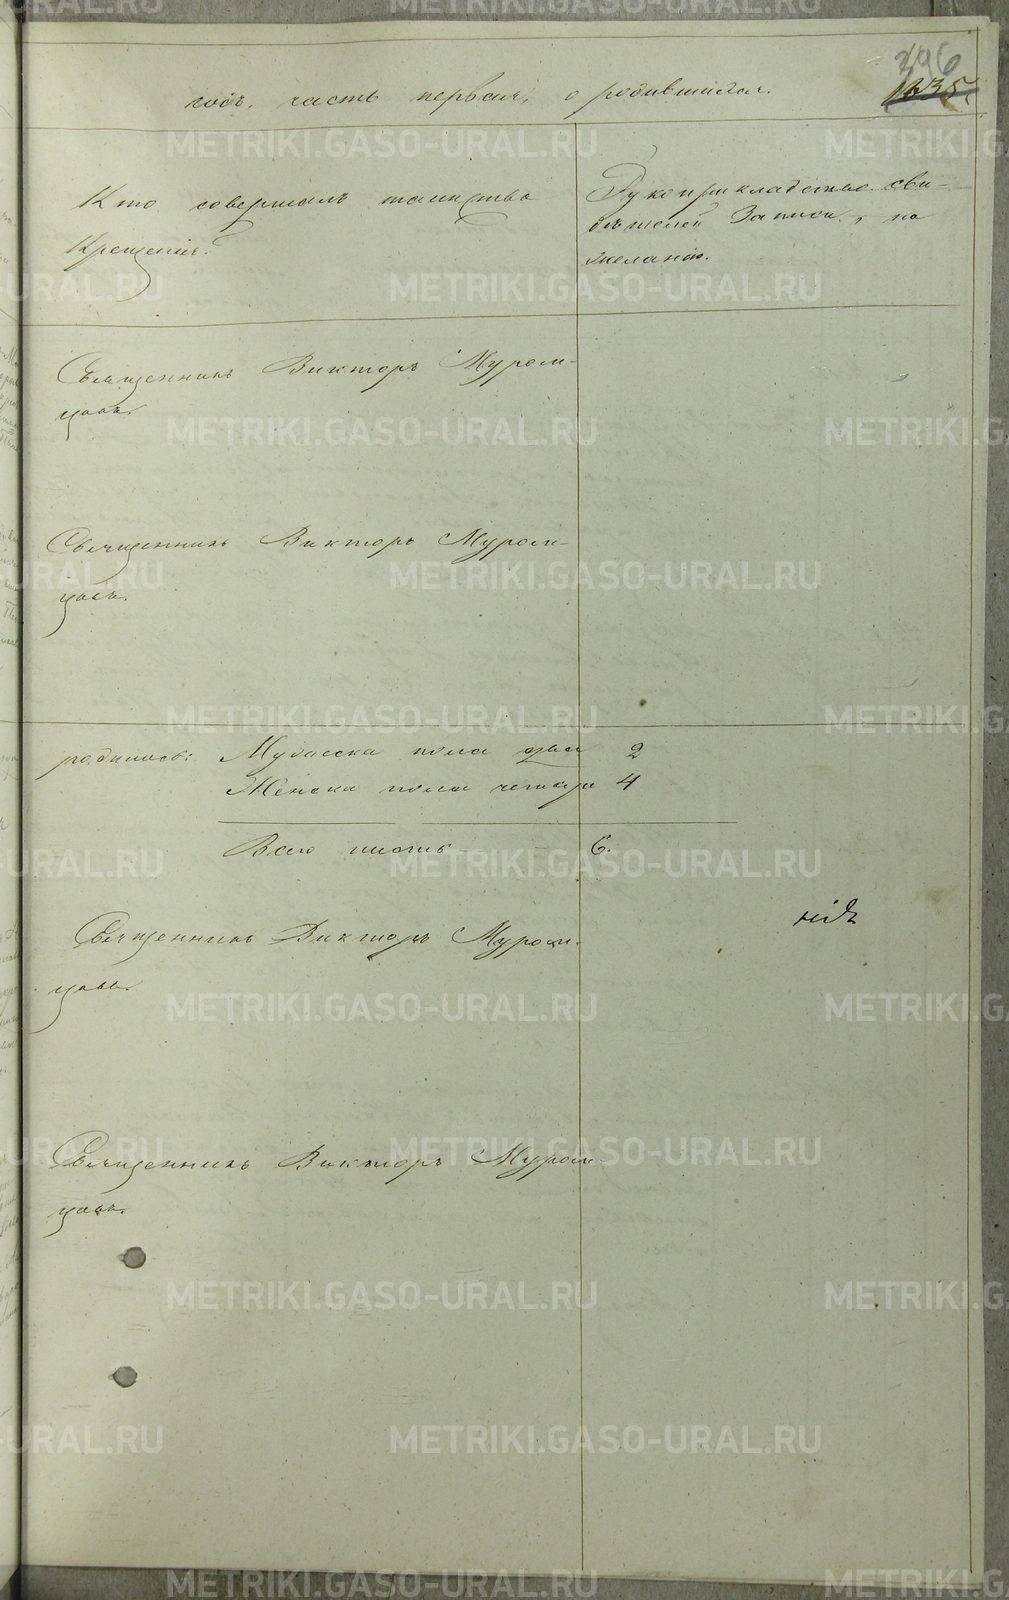 396
1235.
годъ, часть первая, о родившихся.
Кто совершалъ таинство
Крещенія?
Рукоприкладство сви-
дѣтелей записи, по
желанію.
Священникъ Викторъ Муром-
цовъ.
Священникъ Викторъ Муром-
цовъ.
родилось: Мужеска пола два 2
Женска пола четыре 4
Всего шесть 6.
Священникъ Викторъ Муром-
цовъ.
Священникъ Викторъ Муром-
цовъ.
METRIKI.GASO-URAL.RU